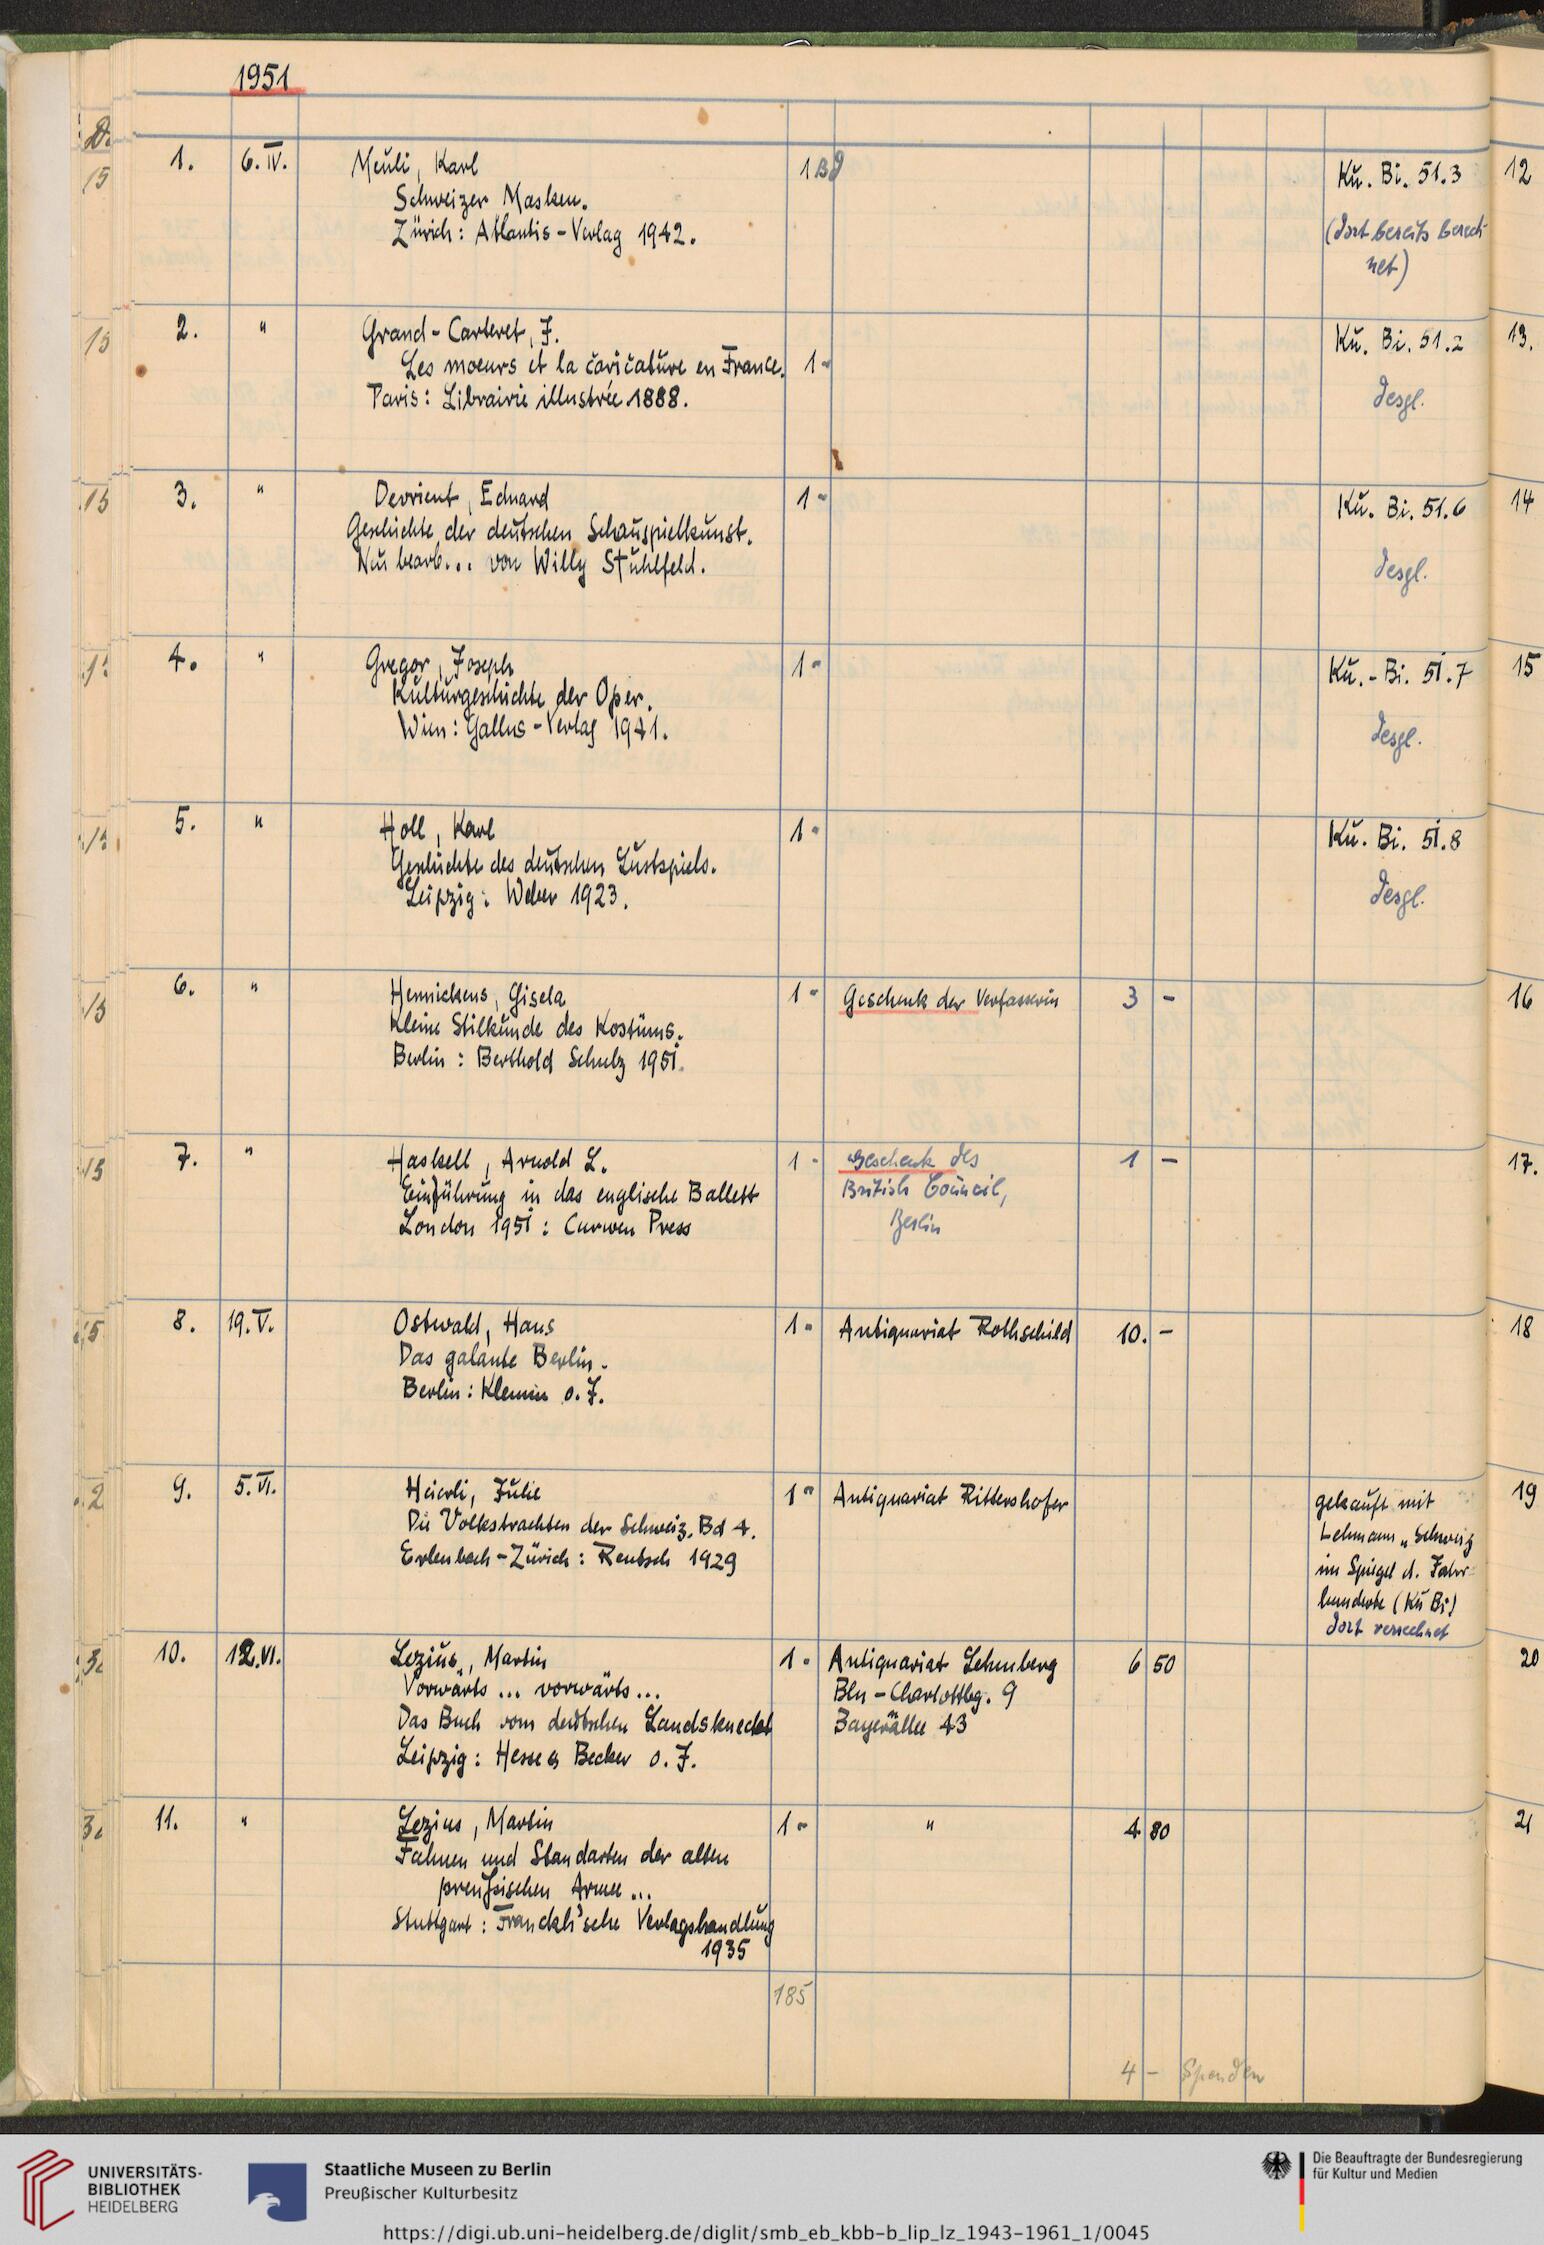 1951
1. 6. IV. Meuli, Karl 1 Bd Ku. Bi. 51.3
Schweizer Masken.
Zürich: Atlantis-Verlag 1942.
(dort bereits berech-
net)
2. " Grand-Carteret, J. Ku. Bi. 51.2
Les moeurs et la caricature en France. 1 "
Paris: Librairie illustrée 1888. desgl.
3. " Devrient, Eduard 1 " Ku. Bi. 51.6
Geschichte der deutschen Schauspielkunst.
Neu bearb... von Willy Stuhlfeld. desgl.
4. " Gregor, Joseph 1 " Ku.-Bi. 51.7
Kulturgeschichte der Oper.
Wien: Gallus-Verlag 1941. desgl.
5. " Holl, Karl 1 " Ku. Bi. 51.8
Geschichte des deutschen Lustspiels.
Leipzig: Weber 1923. desgl.
6. " Hennickens, Gisela 1 " Geschenk der Verfasserin 3 -
Kleine Stilkunde des Kostüms.
Berlin: Berthold Schulz 1951.
7. " Haskell, Arnold L. 1 " Geschenk des 1 -
Einführung in das englische Ballett British Council,
London 1951: Curwen Press Berlin
8. 19. V. Ostwald, Hans 1 " Antiquariat Rothschild 10. -
Das galante Berlin.
Berlin: Klemm o. J.
9. 5. VI. Heierli, Julie 1 " Antiquariat Rittershofer gekauft mit
Die Volkstrachten der Schweiz. Bd 4. Lehmann „Schweiz
Erlenbach-Zürich: Rentsch 1929 im Spiegel d. Jahr-
hunderte (Ku Bi)
dort verrechnet
10. 12. VI. Lezius, Martin 1 " Antiquariat Lehnberg 6 50
Vorwärts ... vorwärts ... Bln-Charlottbg. 9
Das Buch vom deutschen Landsknecht Bayernallee 43
Leipzig: Hesse & Becker o. J.
11. " Lezius, Martin 1 " " 4 80
Fahnen und Standarten der alten
preußischen Armee ...
Stuttgart: Franckh'sche Verlagshandlung
1935
185
4 - Spenden
12
13.
14
15
16
17.
18
19
20
21
UNIVERSITÄTS-
BIBLIOTHEK
HEIDELBERG
Staatliche Museen zu Berlin
Preußischer Kulturbesitz
Die Beauftragte der Bundesregierung
für Kultur und Medien
https://digi.ub.uni-heidelberg.de/diglit/smb_eb_kbb-b_lip_lz_1943-1961_1/0045